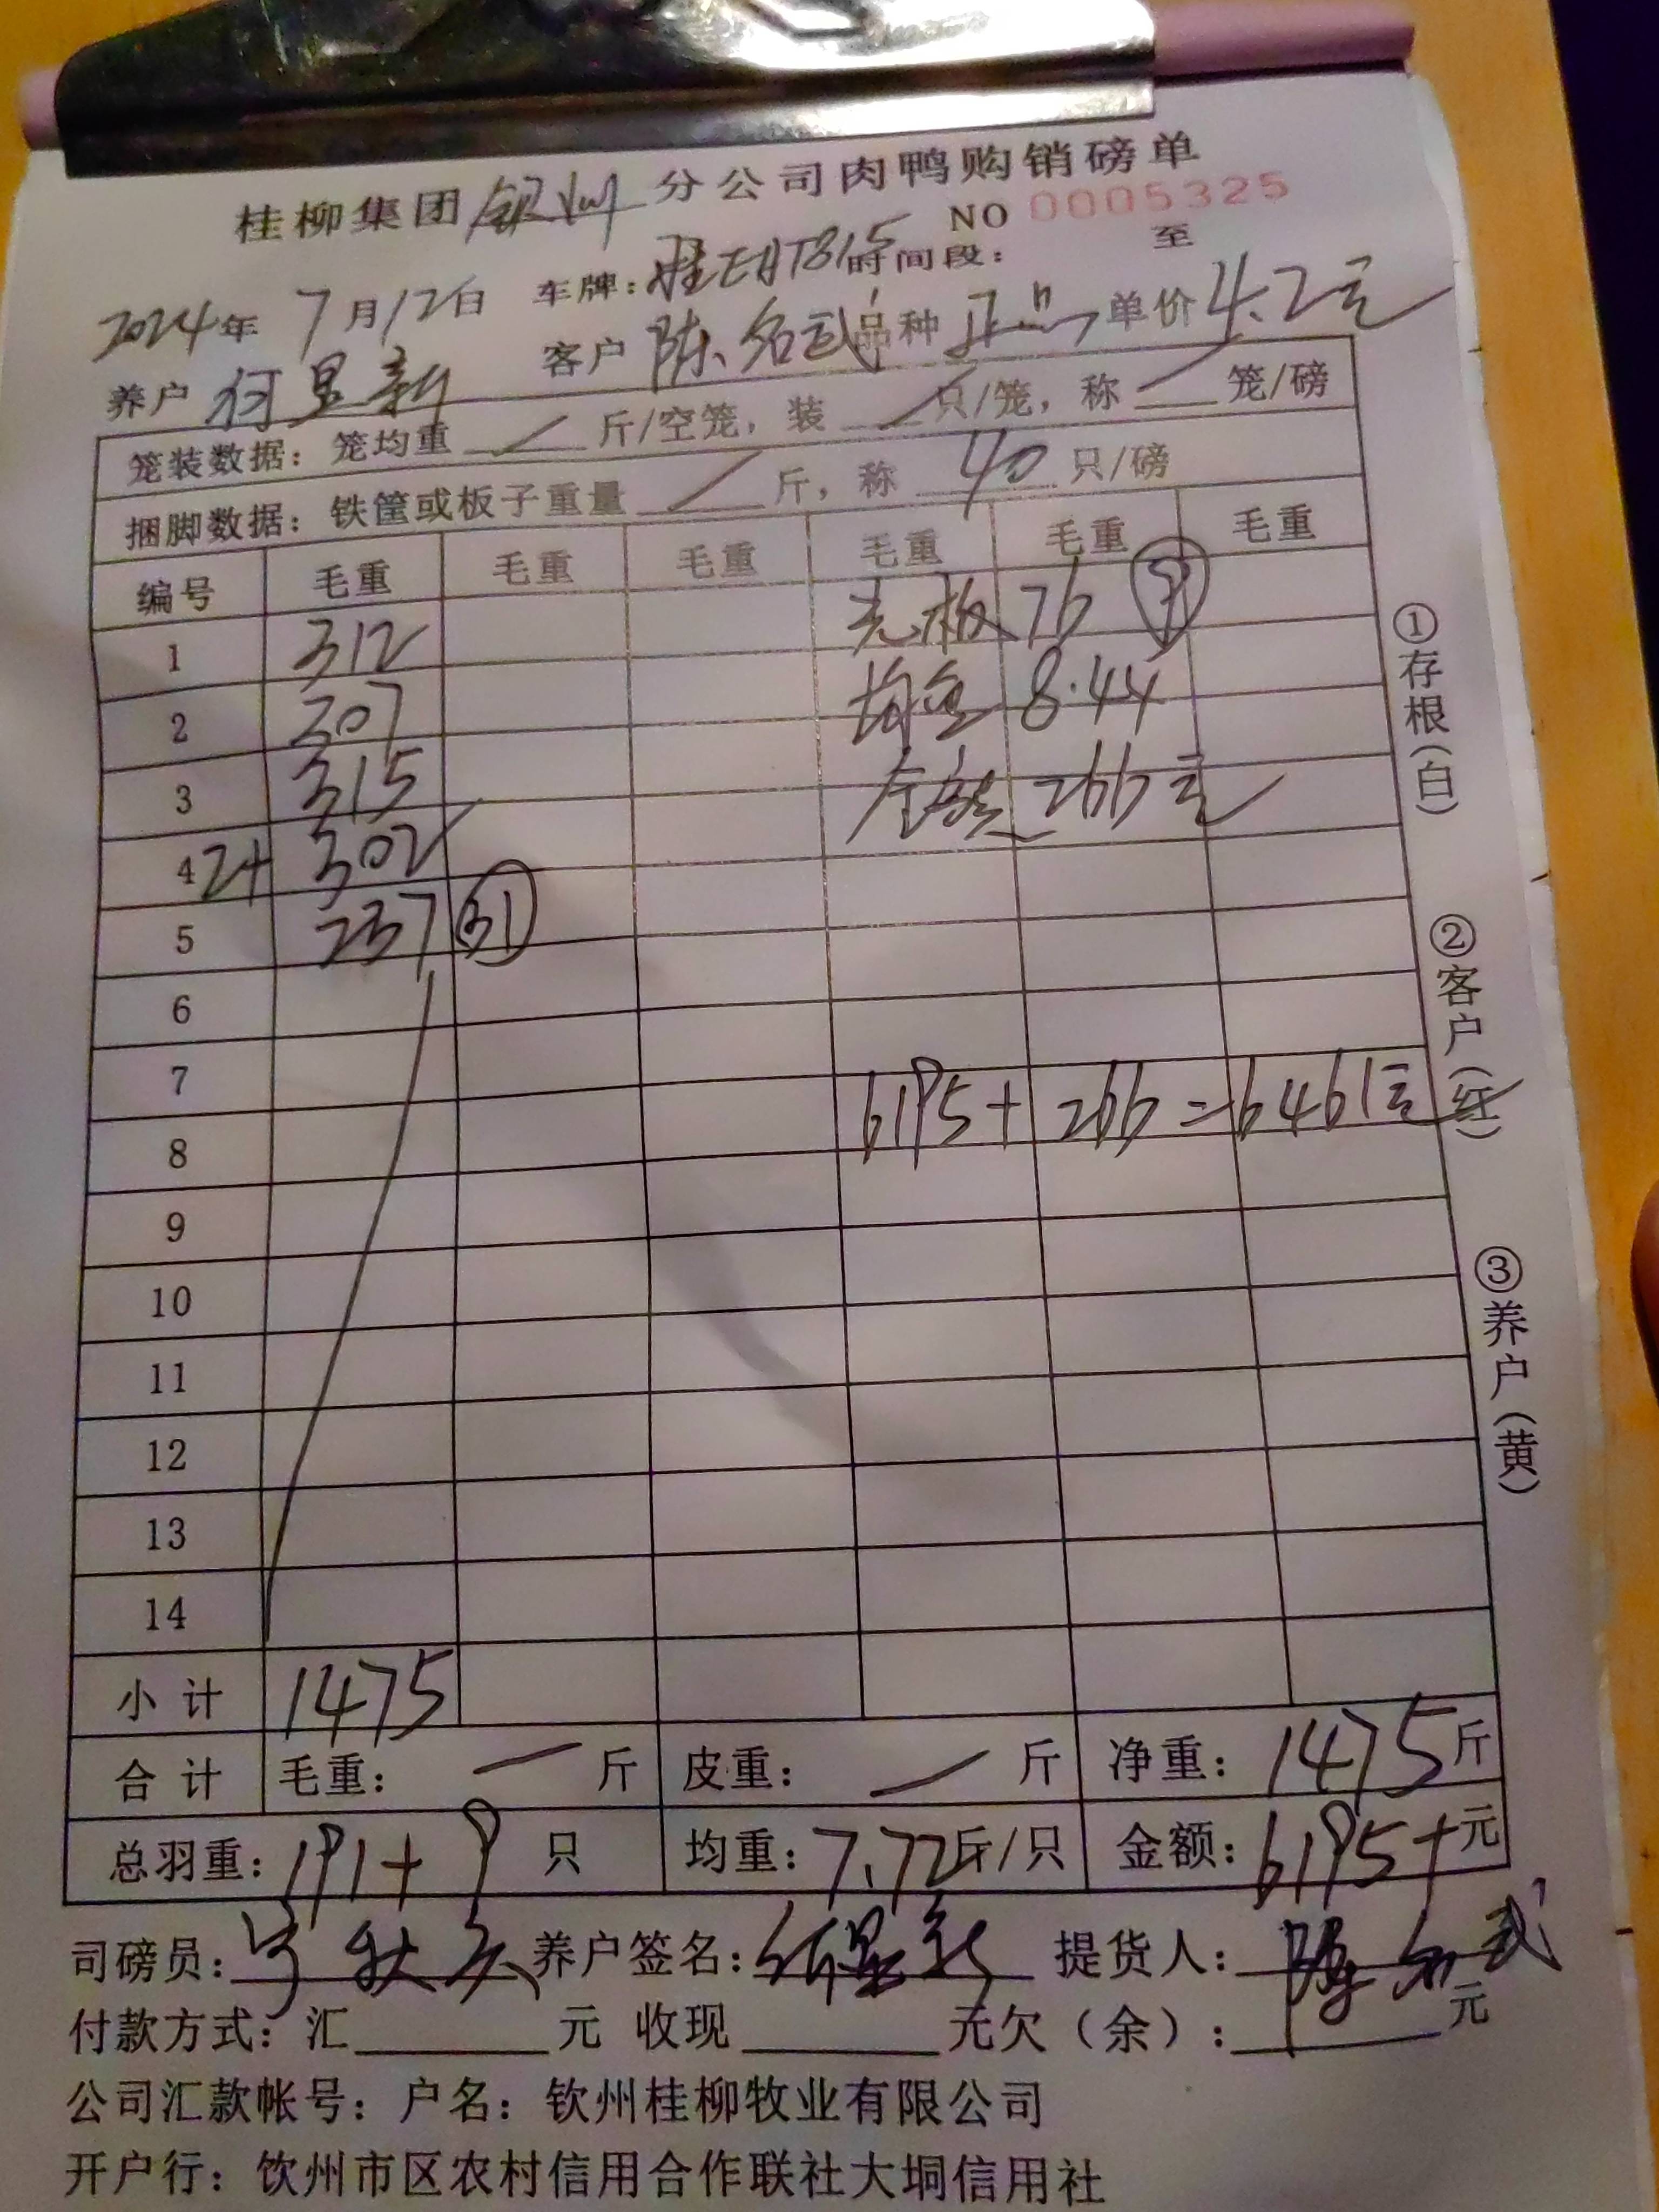 桂柳集团钦州分公司肉鸭购销磅单
NO 0005325
2024年 7月12日 车牌: 时间段: 至
养户 何显新 客户 陈名武 品种 正品 单价 4.2元
笼装数据: 笼均重 / 斤/空笼, 装 / 只/笼, 称 / 笼/磅
捆脚数据: 铁筐或板子重量 / 斤, 称 40 只/磅
编号 毛重 毛重 毛重 毛重 毛重 毛重
1 312 76 9
2 307 均重 8.44
3 315 金额 266元
4 2+ 302
5 237 31
6
7
8 6195+266=6461元
9
10
11
12
13
14
小计 1475
合计 毛重: — 斤 皮重: — 斤 净重: 1475斤
总羽重: 191+9 只 均重: 7.72斤/只 金额: 6195+元
司磅员: 养户签名: 何显新 提货人: 陈名武
付款方式: 汇 元 收现 元欠(余): 元
公司汇款帐号: 户名: 钦州桂柳牧业有限公司
开户行: 饮州市区农村信用合作联社大垌信用社
①存根(白)
②客户(红)
③养户(黄)